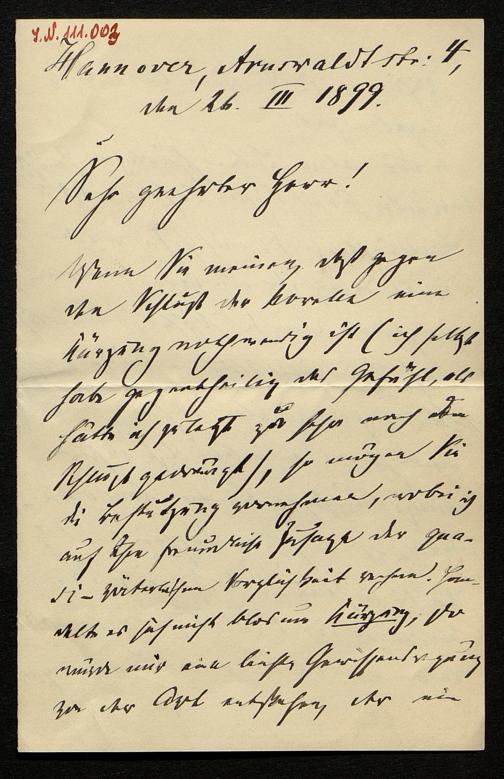 I.N. 111.003
Hannover, Arnswaldtstr: 4,
den 26. III 1899.
Sehr geehrter Herr!
Wenn Sie meinen, daß gegen
den Schluß der Novelle eine
Kürzung nothwendig ist (ich selbst
habe gegentheilig das Gefühl, als
hätte ich zuletzt zu sehr nach dem
Schluß gedrängt), so mögen Sie
die Kürzung vornehmen, wobei ich
auf Ihre freundliche Zusage der qua-
si-väterlichen Sorglichkeit rechne. Han-
delte es sich nicht blos um Kürzung, so
würde mir eine leichte Gewissensregung
von der Art entstehen, der ein